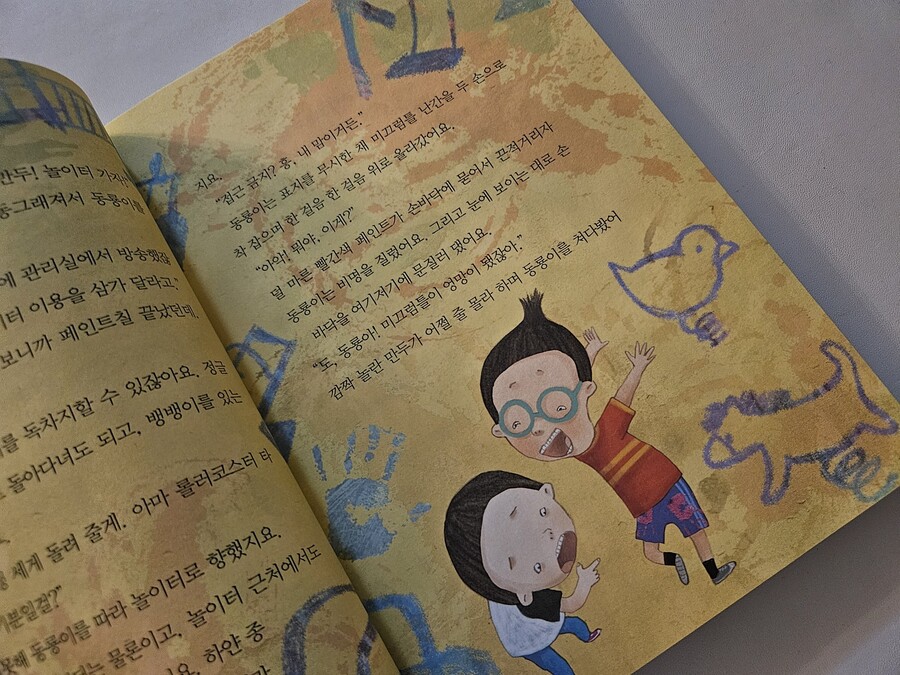 만두! 놀이터 가자
동그래져서 동룡이를
에 관리실에서 방송했잖
이터 이용을 삼가 달라고."
보니까 페인트칠 끝났던데.
를 독차지할 수 있잖아요. 정글
돌아다녀도 되고, 뱅뱅이를 있는
세게 돌려 줄게. 아마 롤러코스터 타
기분일걸?"
못해 동룡이를 따라 놀이터로 향했지요.
는 물론이고, 놀이터 근처에서도
요. 하얀 종
지요.
"접근 금지? 흥, 내 맘이거든."
동룡이는 표지를 무시한 채 미끄럼틀 난간을 두 손으로
착 잡으며 한 걸음 한 걸음 위로 올라갔어요.
"아악! 뭐야, 이게?"
덜 마른 빨간색 페인트가 손바닥에 묻어서 끈적거리자
동룡이는 비명을 질렀어요. 그리고 눈에 보이는 대로 손
바닥을 여기저기에 문질러 댔어요.
"도, 동룡아! 미끄럼틀이 엉망이 됐잖아."
깜짝 놀란 만두가 어쩔 줄 몰라 하며 동룡이를 쳐다봤어